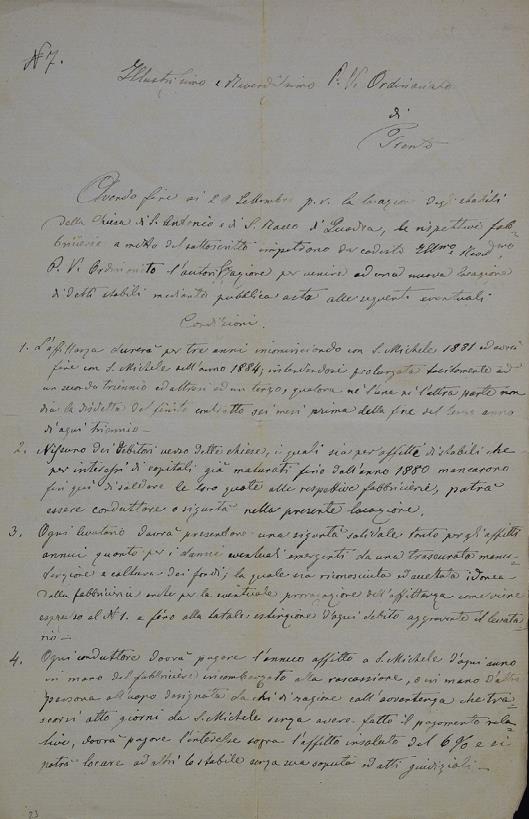 N 7.
Illustrissimo e Reverendissimo P. V. Ordinariato
di
Trento
Avendo fine ai 29 Settembre p. v. la locazione degli stabili
della Chiesa di S. Antonio e di S. Rocco di Quadra, le rispettive fab-
bricerie a mezzo del sottoscritto impetrano da codesto Illmo e Revdmo
P. V. Ordinariato l'autorizzazione per venire ad una nuova locazione
di detti stabili mediante pubblica asta alle seguenti eventuali
Condizioni.
1. L'affittanza durerà per tre anni incominciando con S. Michele 1881 ed avrà
fine con S. Michele dell'anno 1884, intendendosi prolungata tacitamente ad
un secondo triennio ed altresì ad un terzo, qualora nè l'una nè l'altra parte non
dia la disdetta del finito contratto sei mesi prima della fine del terzo anno
d'ogni triennio. —
2. Nissuno dei debitori verso dette chiese, i quali sia per affitti di stabili che
per interessi di capitali già maturati fino dall'anno 1880 mancarono
fin quì di saldare le loro quote alle rispettive fabbricerie, potrà
essere conduttore o sigurtà nella presente locazione.
3. Ogni levatario dovrà presentare una sigurtà solidale tanto per gli affitti
annui quanto per i danni eventuali emergenti da una trascurata manu-
tenzione e coltura dei fondi, la quale sia riconosciuta ed accettata idonea
dalla fabbriceria anche per la eventuale prorogazione dell'affittanza come viene
espresso al N 1. e fino alla totale estinzione d'ogni debito aggravante il levata-
rio. —
4. Ogni conduttore dovrà pagare l'annuo affitto a S. Michele d'ogni anno
in mano del fabbriciere incombenzato alla riscossione, o in mano d'altra
persona all'uopo designata da chi di ragione coll'avvertenza che tra-
scorsi otto giorni da S. Michele senza avere fatto il pagamento rela-
tivo, dovrà pagare l'interesse sopra l'affitto insoluto del 6% e si
potrà locare ad altri lo stabile senza sua saputa ed atti giudiziali. —
23